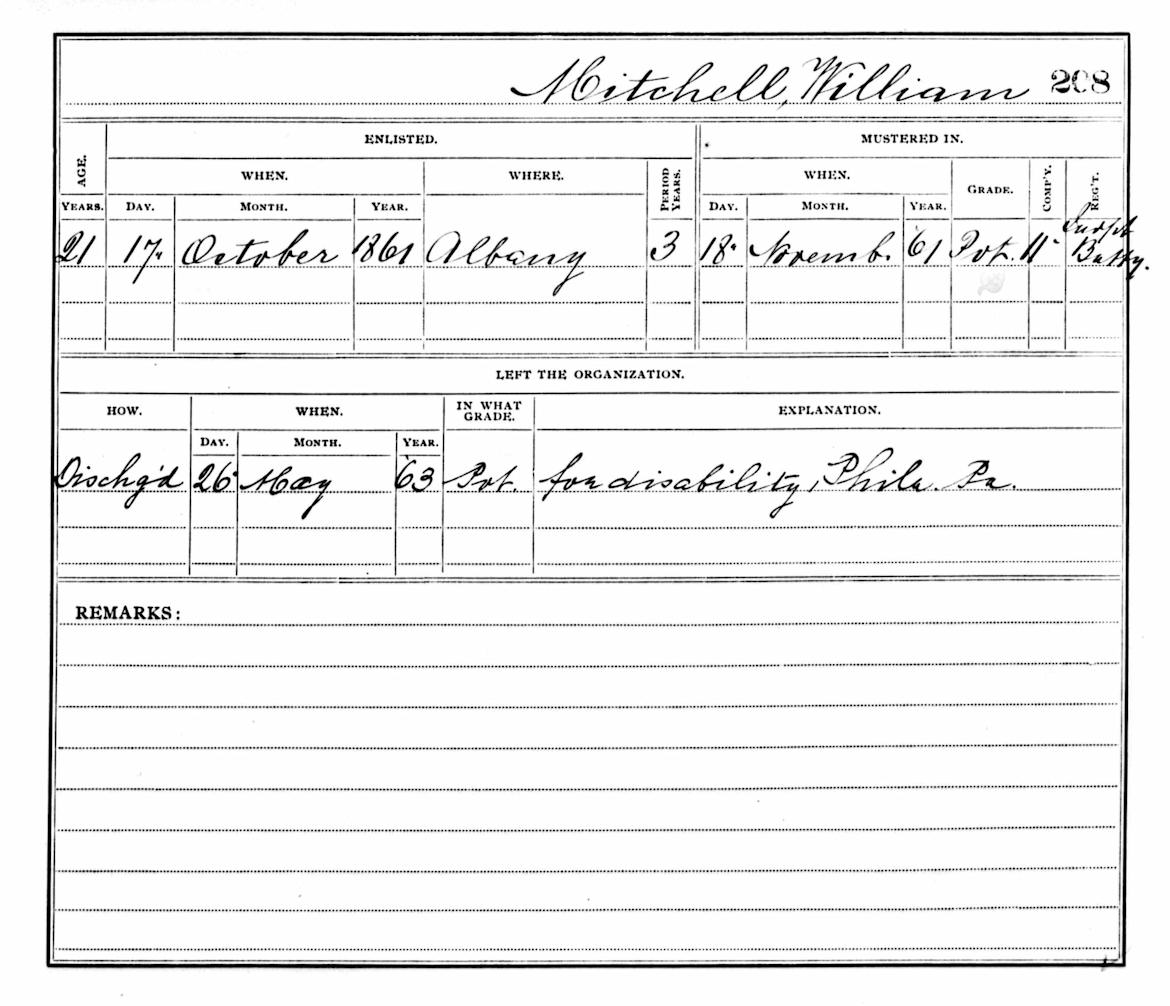 Mitchell, William 208
ENLISTED. MUSTERED IN.
AGE. WHEN. WHERE. PERIOD YEARS. WHEN. GRADE. COMP'Y. REG'T.
YEARS. DAY. MONTH. YEAR. DAY. MONTH. YEAR.
21 17. October 1861 Albany 3 18. Novemb. '61 Pvt. 11" Indpt
Batty.
LEFT THE ORGANIZATION.
HOW. WHEN. IN WHAT GRADE. EXPLANATION.
DAY. MONTH. YEAR.
Dischg'd 26 May '63 Pvt. for disability, Phila. Pa.
REMARKS: